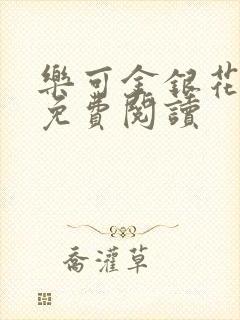 樂可金銀花
免費閱讀
喬灌草